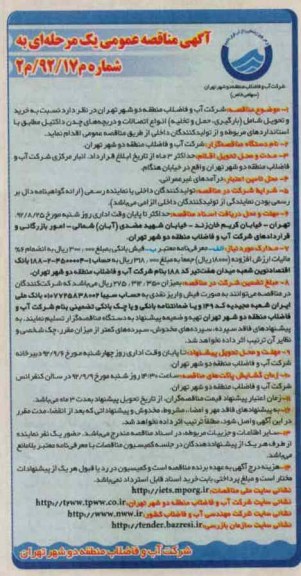 آگهی مناقصه عمومی یک مرحله‌ای به
شماره م۹۲/۱۷/م۲
شرکت آب و فاضلاب منطقه دو شهر تهران
(سهامی خاص)
۱- موضوع مناقصه: شرکت آب و فاضلاب منطقه دو شهر تهران در نظر دارد نسبت به خرید
و تحویل شامل (بارگیری، حمل و تخلیه) انواع اتصالات و دریچه‌های چدن داکتیل مطابق با
استانداردهای مربوطه و از تولیدکنندگان داخلی از طریق مناقصه عمومی اقدام نماید.
۲- نام دستگاه مناقصه‌گزار: شرکت آب و فاضلاب منطقه دو شهر تهران.
۳- مدت و محل تحویل اقلام: حداکثر ۳ ماه از تاریخ ابلاغ قرارداد، انبار مرکزی شرکت آب و
فاضلاب منطقه دو شهر تهران واقع در خیابان هنگام.
۴- محل تامین اعتبار: درآمدهای غیرعمرانی
۵- شرایط شرکت در مناقصه: تولیدکنندگان داخلی با نماینده رسمی (ارائه گواهینامه دال بر
رسمی بودن نمایندگی از تولیدکنندگان داخلی الزامی می‌باشد).
۶- مهلت و محل دریافت اسناد مناقصه: حداکثر تا پایان وقت اداری روز شنبه مورخ ۹۲/۸/۲۵
تهران - خیابان کریم خان‌زند - خیابان شهید عضدی (آبان) شمالی - امور بازرگانی و
قراردادهای شرکت آب و فاضلاب منطقه دو شهر تهران.
۷- مدارک مورد نیاز: الف- معرفی‌نامه معتبر ب- فیش بانکی بمبلغ ۳۰۰,۰۰۰ ریال به انضمام ۶%
مالیات ارزش افزوده (۱۸۰۰۰ ریال) جمعا به مبلغ ۳۱۸,۰۰۰ ریال به حساب بانک
اقتصادنوین شعبه میدان هفت‌تیر کد ۱۸۸ بنام شرکت آب و فاضلاب منطقه دو شهر تهران.
۸- مبلغ تضمین شرکت در مناقصه: بمیزان ریال می‌باشد که شرکت‌کنندگان
در مناقصه می‌توانند به صورت فیش واریز نقدی به حساب سیبا بانک ملی
ایران شعبه مجیدیه کد ویا ضمانتنامه بانکی و یا چک بانکی تضمینی بنام شرکت آب و
فاضلاب منطقه دو شهر تهران تهیه و ضمیمه پیشنهاد به دستگاه مناقصه‌گزار تسلیم نمایند. به
پیشنهادهای فاقد سپرده، سپرده‌های مخدوش، سپرده‌های کمتر از میزان مقرر، چک شخصی و
نظایر آن ترتیب اثر داده نخواهد شد.
۹- مهلت و محل تحویل پیشنهادها: تا پایان وقت اداری روز چهارشنبه مورخ ۹۲/۹/۶ دبیرخانه
شرکت آب و فاضلاب منطقه دو شهر تهران.
۱۰- زمان گشایش پاکت‌های مناقصه: ساعت روز شنبه مورخ ۹۲/۹/۹ در سالن کنفرانس
شرکت آب و فاضلاب منطقه دو شهر تهران.
۱۱- زمان اعتبار پیشنهاد قیمت مناقصه‌گران، از تاریخ تحویل پیشنهاد بمدت ۳ ماه می‌باشد.
۱۲- به پیشنهادهای فاقد مهر و امضاء، مشروط، مخدوش و پیشنهاداتی که بعد از انقضاء مدت مقرر
در این آگهی واصل شود، مطلقاً ترتیب اثر داده نخواهد شد.
۱۳- سایر اطلاعات و جزییات مربوطه، در اسناد مناقصه مندرج می‌باشد. حضور یک نفر نماینده
از طرف هر یک از پیشنهاددهندگان در جلسه کمیسیون مناقصات با معرفی‌نامه معتبر بلامانع
می‌باشد.
۱۴- هزینه درج آگهی به عهده برنده مناقصه است و کمیسیون در رد یا قبول هر یک از پیشنهادات
مختار است و مبلغ پرداختی بابت خرید اسناد قابل استرداد نمی‌باشد.
نشانی سایت ملی مناقصات: http://iets.mporg.ir
نشانی سایت شرکت آب و فاضلاب منطقه دو شهر تهران: http://tww.tpww.co.ir
نشانی سایت شرکت مهندسی آب و فاضلاب کشور: http://www.nww.ir
نشانی سایت سازمان بازرسی: http://tender.bazresi.ir
شرکت آب و فاضلاب منطقه دو شهر تهران